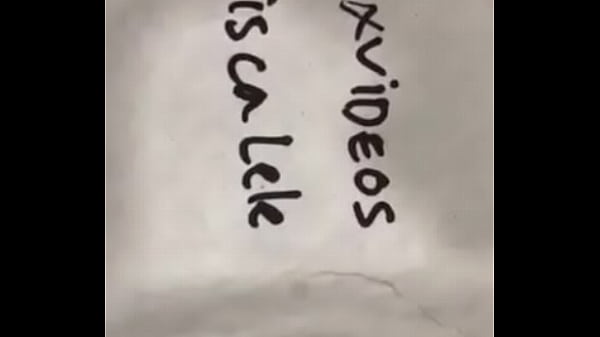 XVIDEOS
isca Lele